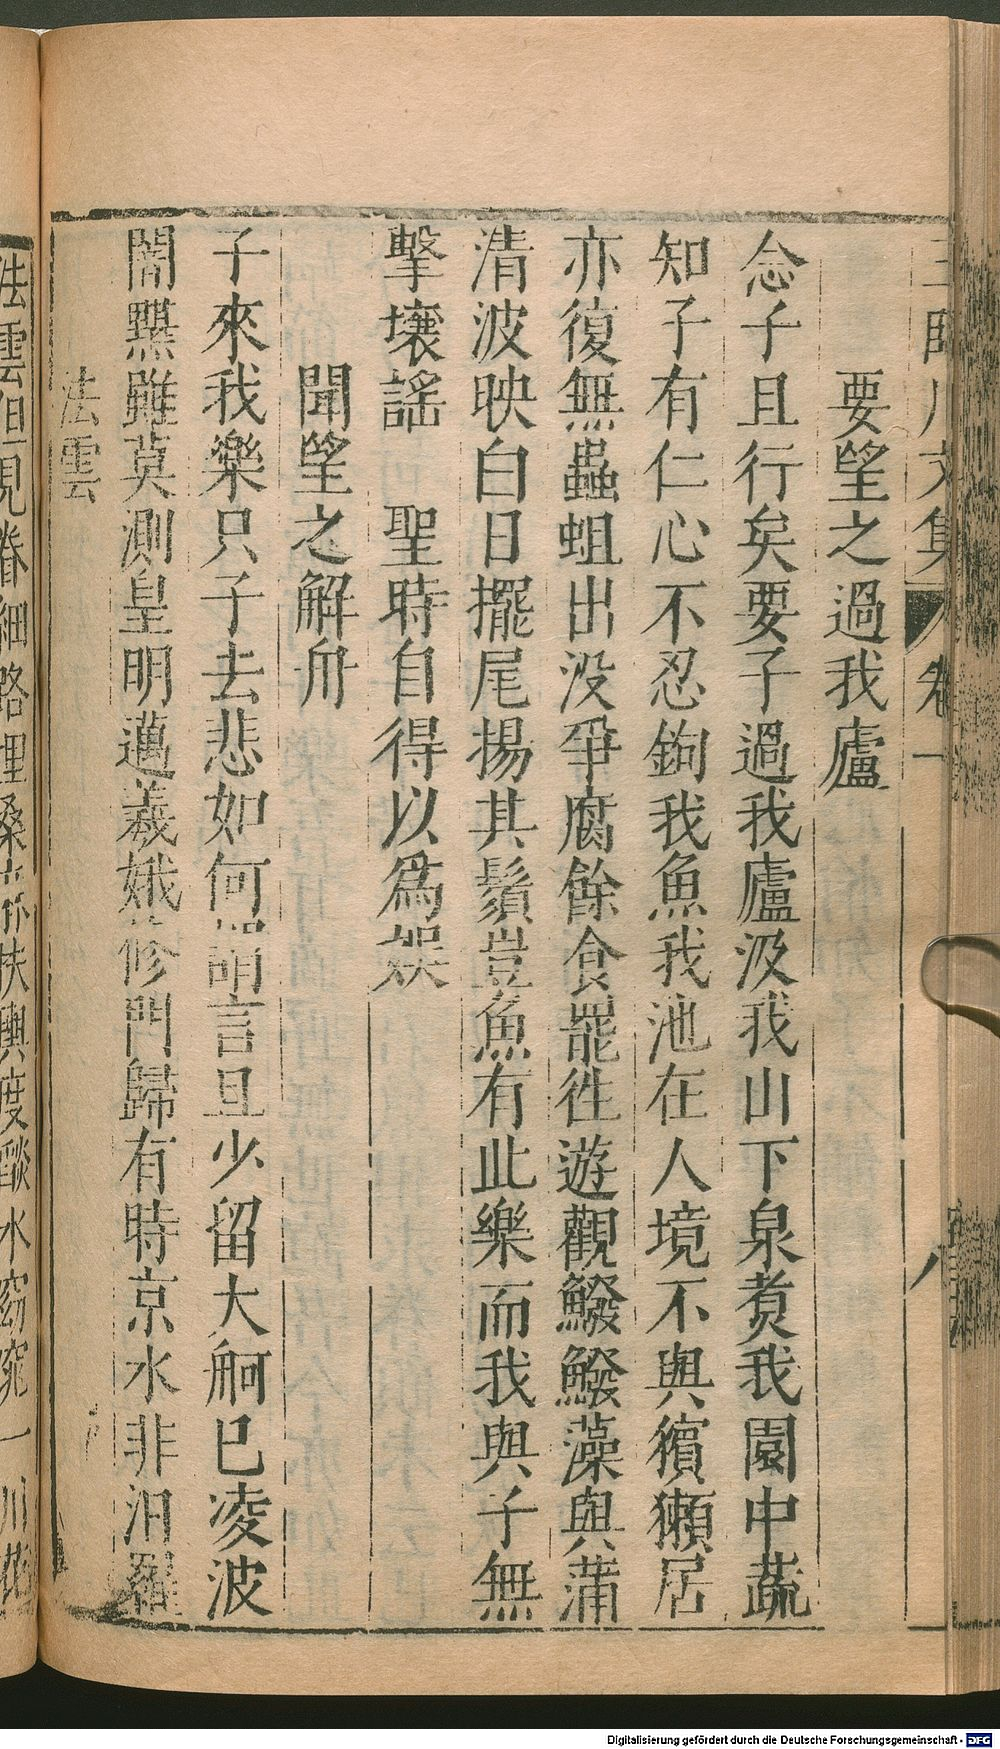 文集 卷一 八
要望之過我廬
念子且行矣要子過我廬汲我山下泉煑我園中蔬
知子有仁心不忍鉤我魚我池在人境不與獱獺居
亦復無蟲蛆出没爭腐餘食罷徃遊觀鱍鱍藻與蒲
清波映白日擺尾揚其鬚豈魚有此樂而我與子無
擊壤謠 聖時自得以爲娱
聞望之解舟
子來我樂只子去悲如何謂言且少留大舸已凌波
闇黮雖莫測皇明邁羲娥修門歸有時京水非汨羅
法雲
法雲但見脊細路埋桑麻扶輿度燄水窈窕一川花
Digitalisierung gefördert durch die Deutsche Forschungsgemeinschaft - DFG